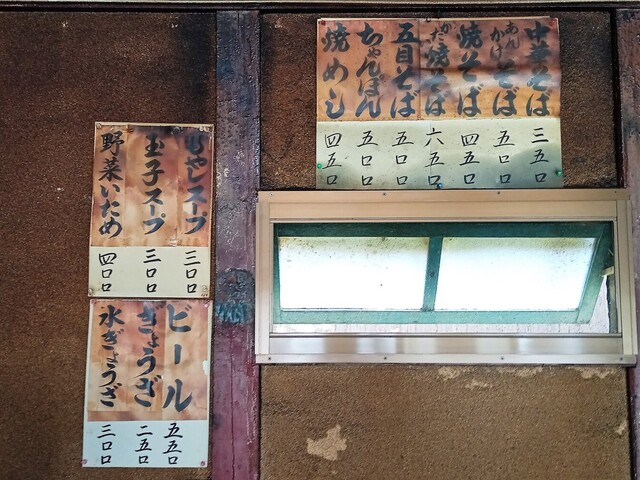 中華そば 三五〇
あんかけそば 五〇〇
焼そば 四五〇
かた焼そば 六五〇
五目そば 五〇〇
ちゃんぽん 五〇〇
焼めし 四五〇
もやしスープ 三〇〇
玉子スープ 三〇〇
野菜いため 四〇〇
ビール 五五〇
ぎょうざ 二五〇
水ぎょうざ 三〇〇